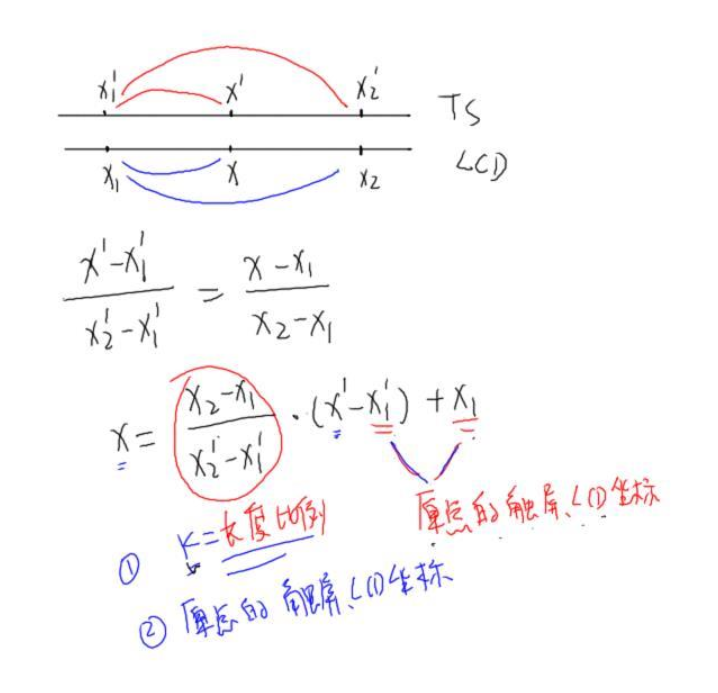 x₁' x' x₂' TS
x₁ x x₂ LCD
(x'-x₁')/(x₂'-x₁') = (x-x₁)/(x₂-x₁)
x = (x₂-x₁)/(x₂'-x₁') · (x'-x₁') + x₁
原点的触屏、LCD坐标
① K=长度比例
② 原点的触屏、LCD坐标